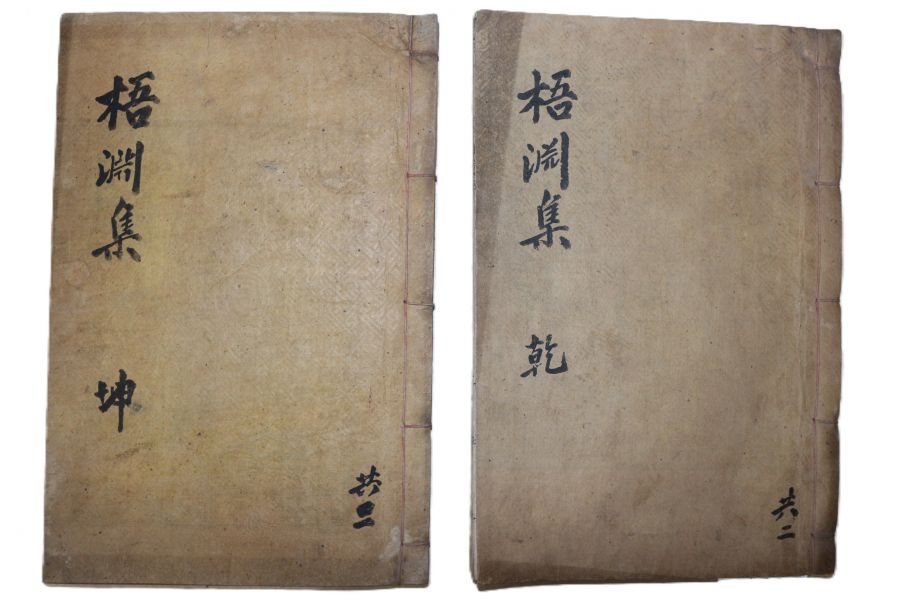 梧淵集
坤
共二
梧淵集
乾
共二